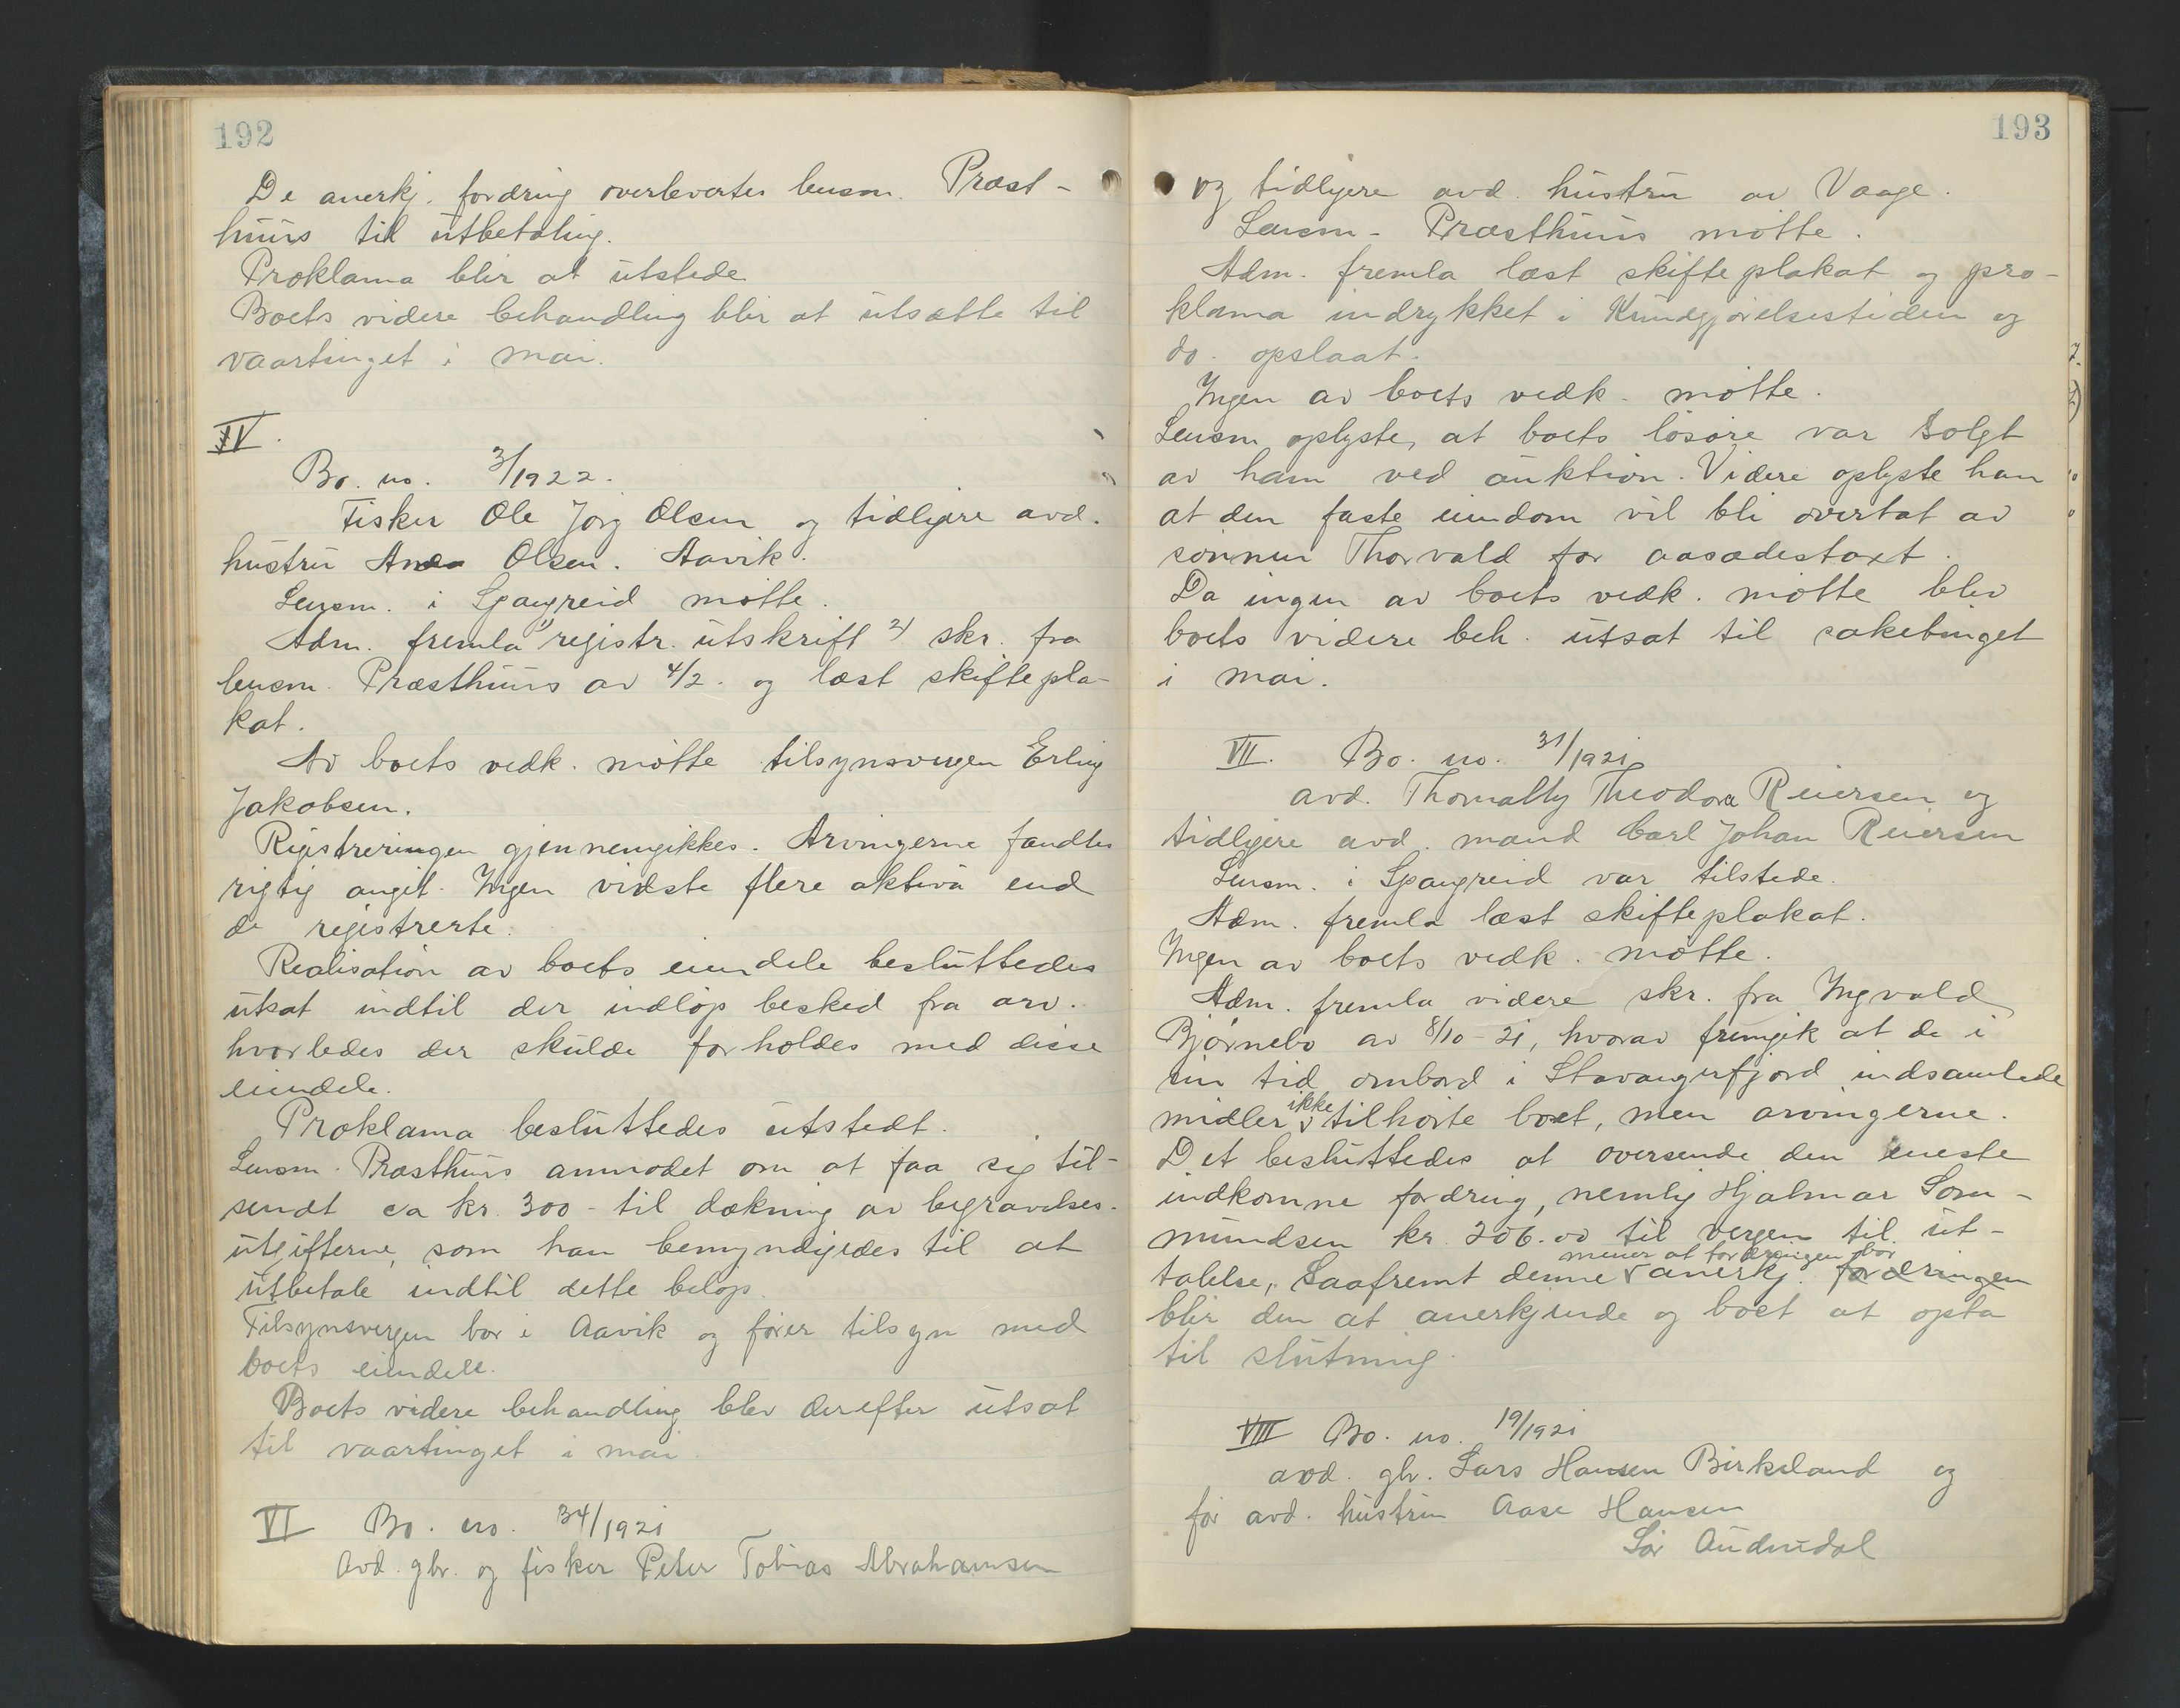 192
De anerkj. fordring overlevertes lensm. Præst-
huus til utbetaling.
Proklama blir at utstede
Boets videre behandling blir at utsætte til
vaartinget i mai.
IV.
Bo. no. 3/1922.
Fisker Ole Jørg Olsen og tidligere avd.
hustru Anna Olsen. Aavik.
Lensm. i Spangreid møtte.
Adm. fremla 1) registr. utskrift 2) skr. fra
lensm. Præsthuus av 4/2. og læst skiftepla-
kat.
Av boets vedk. møtte tilsynsvergen Erling
Jakobsen.
Registreringen gjennemgikkes. Arvingerne fandtes
rigtig angit. Ingen vidste flere aktiva end
de registrerte.
Realisation av boets eiendele besluttedes
utsat indtil der indløp besked fra arv.
hvorledes der skulde forholdes med disse
eiendele.
Proklama besluttedes utstedt.
Lensm. Præsthuus anmodet om at faa sig til-
sendt ca kr. 300 - til dækning av begravelses-
utgifterne, som han bemyndigedes til at
utbetale indtil dette beløp.
Tilsynsvergen bor i Aavik og fører tilsyn med
boets eiendele.
Boets videre behandling blev derefter utsat
til vaartinget i mai.
VI Bo. no. 34/1921
Avd. gbr. og fisker Peter Tobias Abrahamsen
193
og tidligere avd. hustru av Vaage.
Lensm. Præsthuus møtte.
Adm. fremla læst skifteplakat og pro-
klama indrykket i Kundgjørelsestiden og
do. opslaat.
Ingen av boets vedk. møtte.
Lensm. oplyste, at boets løsøre var solgt
av ham ved auktion. Videre oplyste han
at den faste eiendom vil bli overtat av
sønnen Thorvald for aasædestaxt.
Da ingen av boets vedk. møtte blev
boets videre beh. utsat til saketinget
i mai.
VII. Bo. no. 31/1921
avd. Thomally Theodora Reiersen og
tidligere avd. mand Carl Johan Reiersen
Lensm. i Spangreid var tilstede.
Adm. fremla læst skifteplakat.
Ingen av boets vedk. møtte.
Adm. fremla videre skr. fra Ingvald
Bjørnebo av 8/10-21, hvorav fremgik at de i
sin tid ombord i Stavangerfjord indsamlede
midler ikke tilhørte boet, men arvingerne.
Det besluttedes at oversende den eneste
indkomne fordring, nemlig Hjalmar Som-
mundsen kr. 206.00 til vergen til ut-
talelse, Saafremt denne mener at fordringen bør anerkj. fordringen
blir den at anerkjende og boet at opta
til slutning.
VIII Bo. no. 19/1921
avd. gbr. Lars Hansen Birkeland og
før avd. hustru Aase Hansen
Sør Audnedal